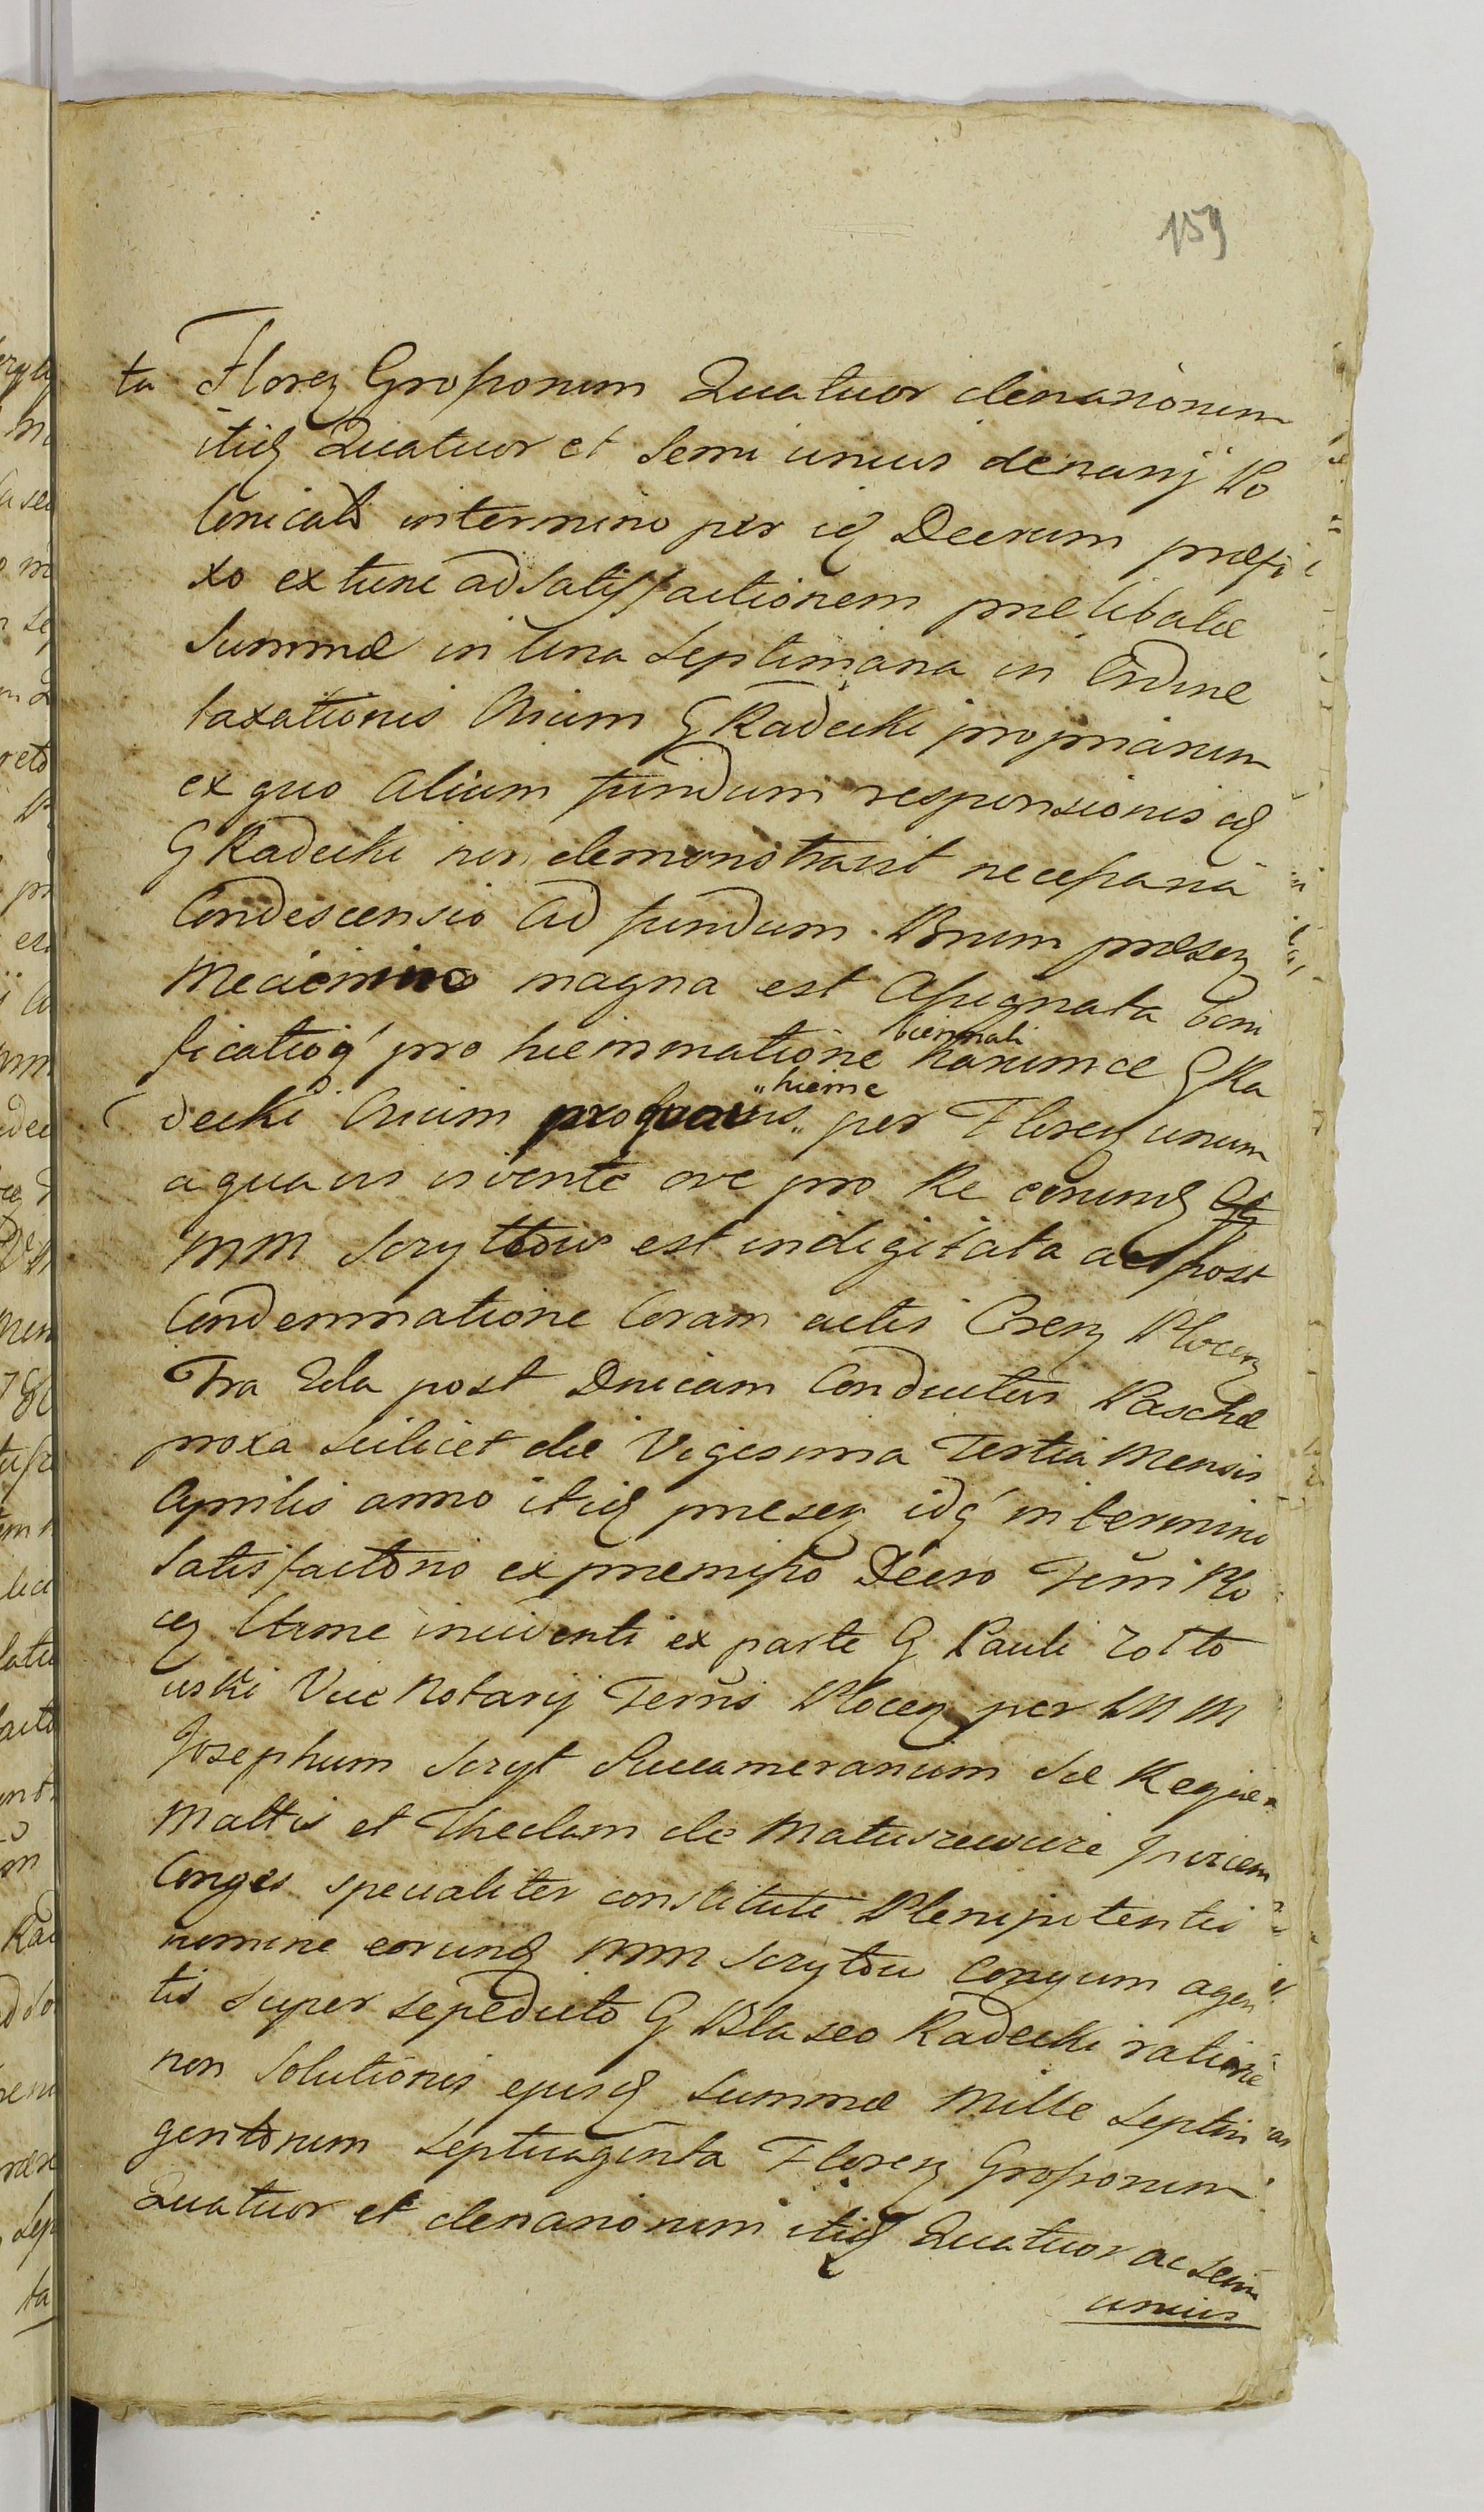 159
ta Florez Grossorum Quatuor denariorum
itidz Quatuor et Semi unius denarij Po
lonicali in termino per idz Decrum præfi
xo extunc ad satisfactionem prælibatæ
Summæ in una Septimana in Ordine
taxationis Ovium G Radecki propriarum
ex quo Alium fundum responsionis idz
G Radecki non demonstravit necessaria
Condescensio Ad fundum Bnrum præsenz
Miecienino magna est Assignata boni
ficatioq' pro hiemmatione biennali harumce G Ra
decki Ovium hieme per Florez unum
a quavis ivente ove pro Re eorumdz
MM Scrytow est indigitata ac post
Condemnatione Coram actis Crenz Plocenz
Fra 2da post Dnicam Conductus Paschæ
proxa scilicet die Vigesima Tertia Mensis
Aprilis anno itidz præsenz idq' in termino
Satisfactorio ex præmisso Decro Terri Plo
cenz Urme incidenti ex parte G Pauli Zotto
wski Vice Notarij Terris Plocenz per MM
Josephum Scryt Succameranum Sæ Regiæ
Mattis et Theclam de Matuszewicze Invicem
Conges specialiter constituti Plenipotentis
nomine eorundz MM Scrytow Conjgum agen
tis super sepedicto G Blaseo Radecki ratione
non Solutionis ejusdz Summæ Mille Septin
gentorum Septuaginta Florenz Grossorum
Quatuor et denariorum itidz Quatuor ac semi
unius